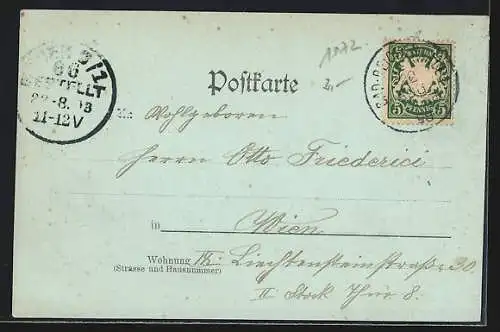 1072
2,-
Postkarte
BAYERN
5 5
PFENNIG
66
BESTELLT
22.8.98
11-12V
An Wohlgeboren
Herrn Otto Friederici
in Wien
Wohnung IX. Liechtensteinstraße 20
(Strasse und Hausnummer)
II Stock Thür 8.